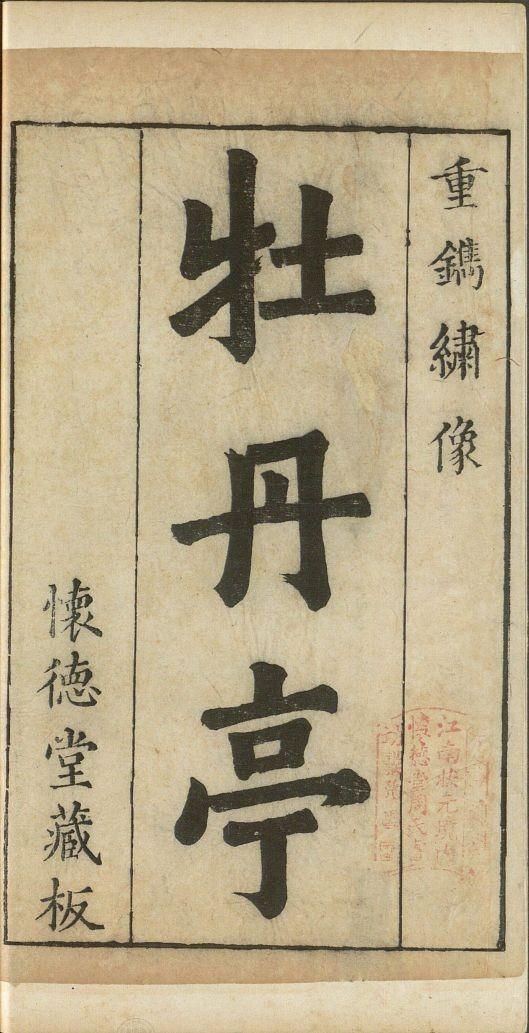 重鐫繡像
牡丹亭
懷德堂藏板
江南狀元境內
懷德堂周氏